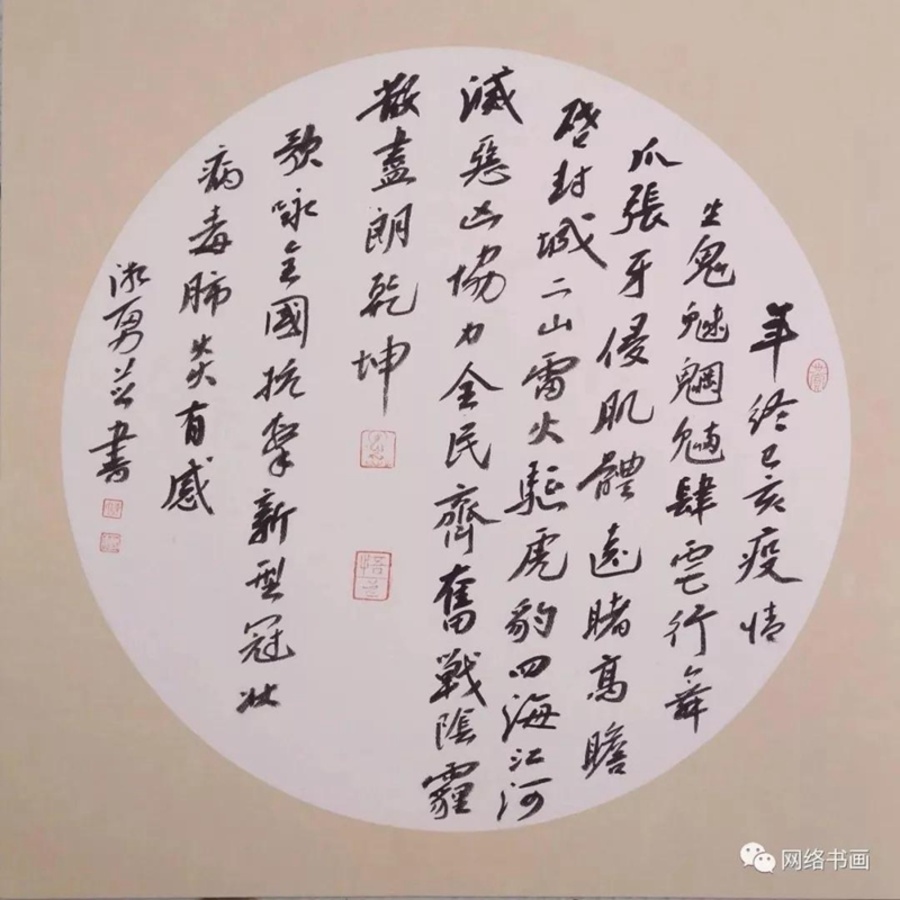 年終己亥疫情
生鬼魅魍魉肆虐行舞
爪張牙侵肌體遠睹高瞻
啓封城二山雷火驅虎豹四海江河
滅惡凶協力全民齊奮戰陰霾
散盡朗乾坤
歌咏全國抗擊新型冠狀
病毒肺炎有感
書
网络书画